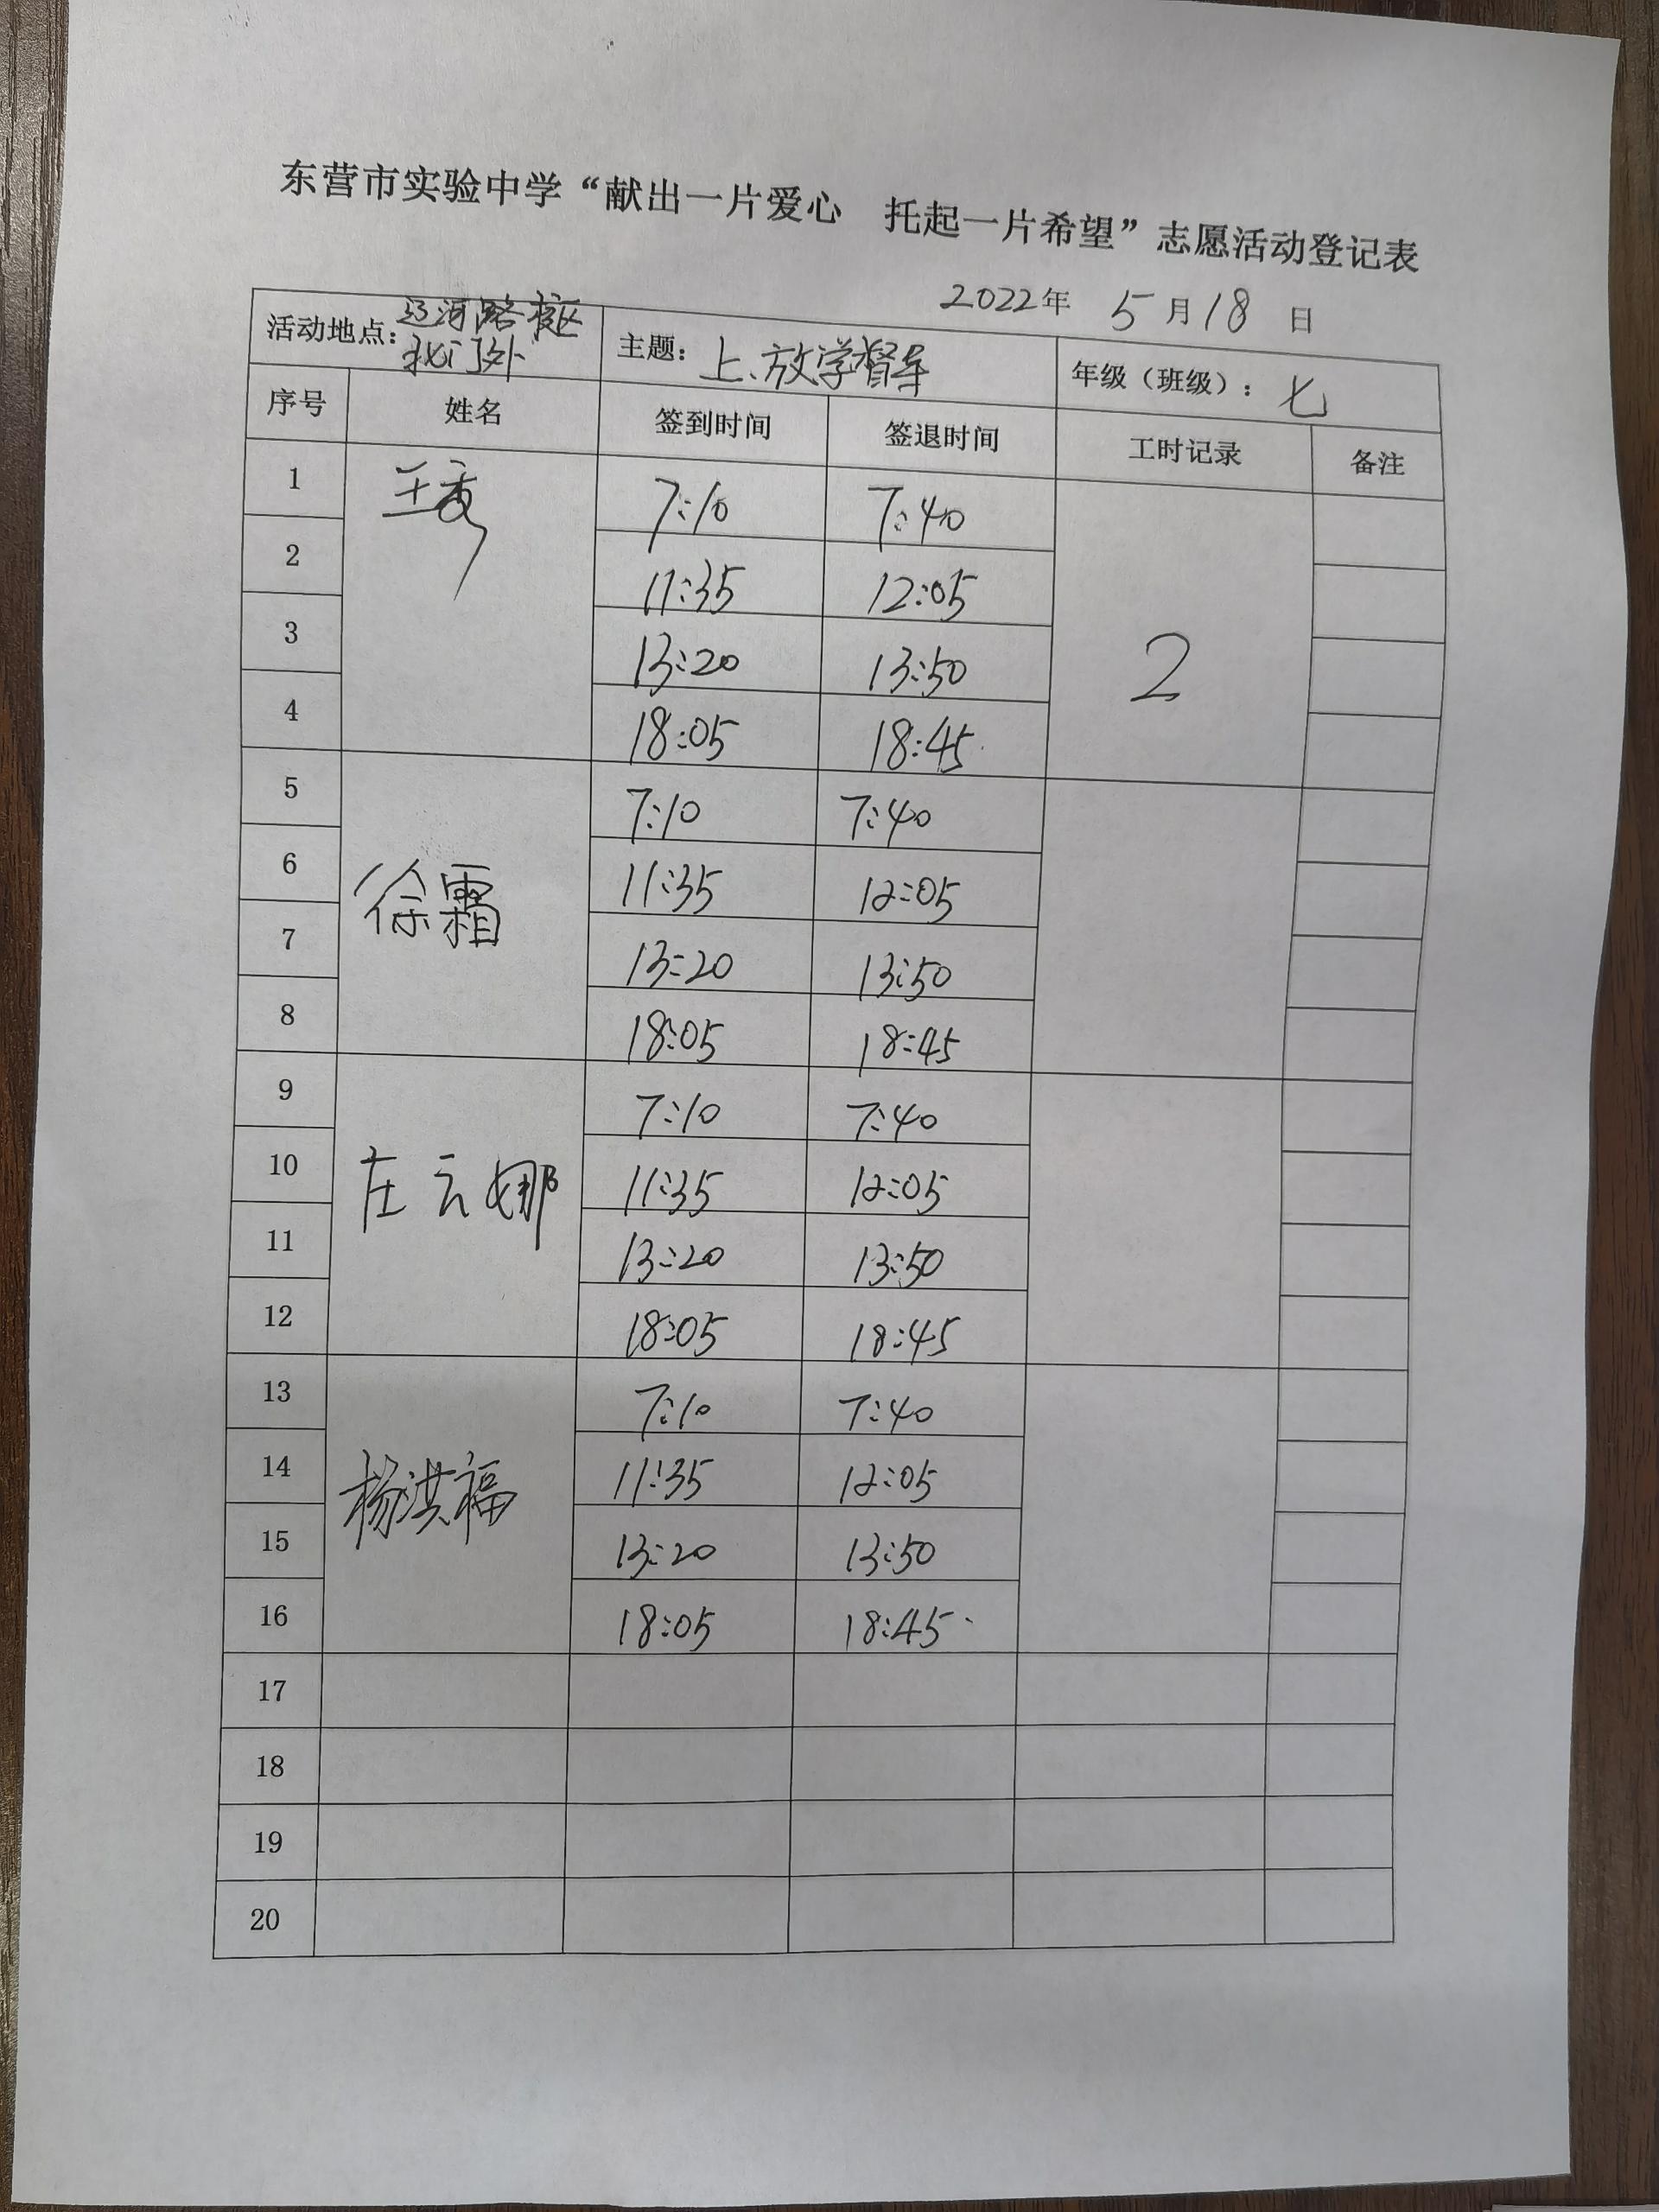 东营市实验中学“献出一片爱心　托起一片希望”志愿活动登记表
2022年 5月18日
活动地点：辽河路校区北门外 主题：上、放学督导 年级（班级）：七
序号 姓名 签到时间 签退时间 工时记录 备注
1 7:10 7:40
2 11:35 12:05
3 13:20 13:50 2
4 18:05 18:45
5 7:10 7:40
6 徐霜 11:35 12:05
7 13:20 13:50
8 18:05 18:45
9 7:10 7:40
10 庄云娜 11:35 12:05
11 13:20 13:50
12 18:05 18:45
13 7:10 7:40
14 杨洪福 11:35 12:05
15 13:20 13:50
16 18:05 18:45
17
18
19
20